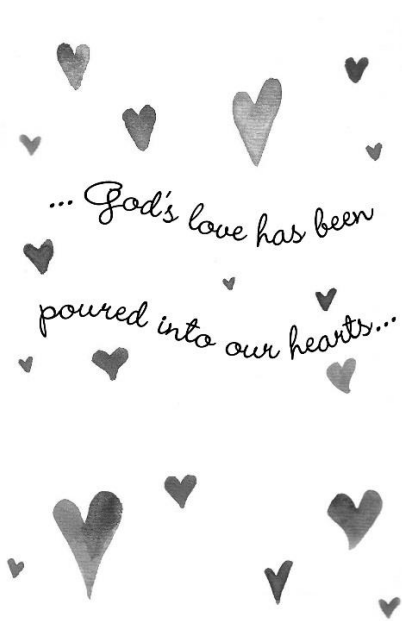 ... God's love has been
poured into our hearts...